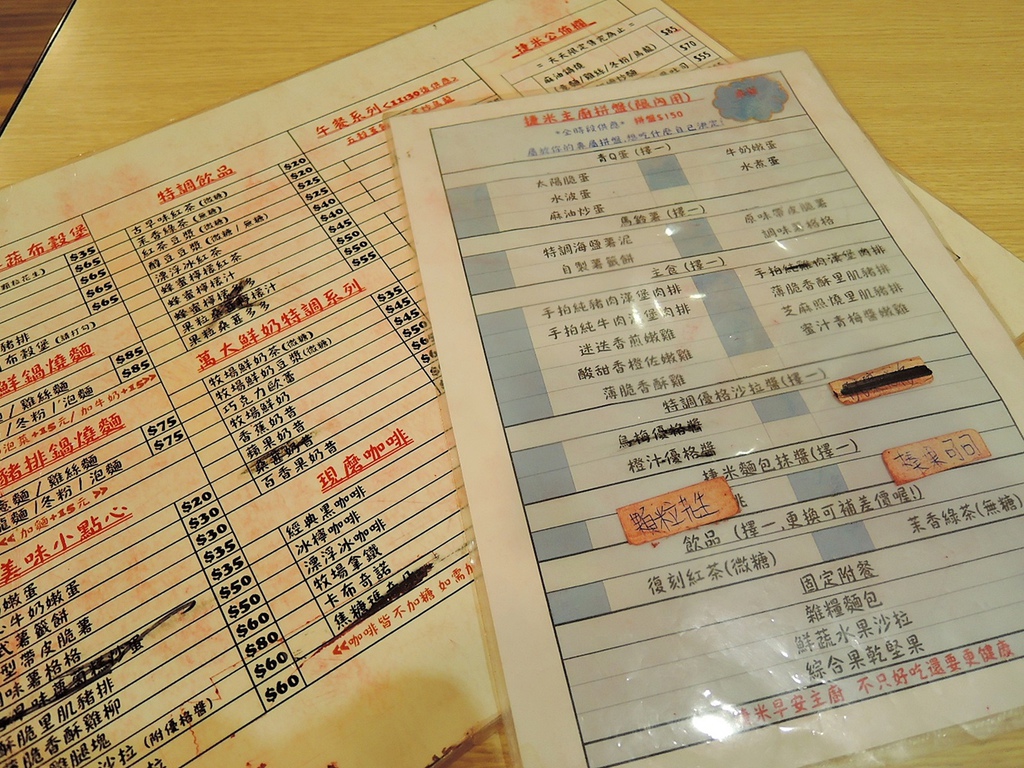 捷米公佈欄
=天天限定售完為止=
麻油鍋燒
$85
$70
$55
午餐系列<11:30後供應>
特調飲品
古早味紅茶(微糖) $20
茉香綠茶(無糖) $25
紅茶豆漿(微糖) $25
釀豆豆漿(微糖/無糖) $40
漂浮冰紅茶 $40
蜂蜜檸檬紅茶 $45
蜂蜜檸檬汁 $50
果糖桑喜多多 $55
萬大鮮奶特調系列
牧場鮮奶茶(微糖) $35
牧場鮮奶豆漿(微糖) $45
巧克力歐蕾 $45
牧場鮮奶 $50
香蕉奶昔
蘋果奶昔
百香果奶昔
現磨咖啡
經典黑咖啡
冰檸咖啡
漂浮冰咖啡
牧場拿鐵
卡布奇諾
<<咖啡皆不加糖 如需
蔬布穀堡
顆粒花生) $35
$65
$65
$65
豬排
布穀堡(請打勾)
鮮鍋燒麵
/雞絲麵 $85
/冬粉/泡麵 $85
泡菜+15元/加牛奶+15>>
豬排鍋燒麵
意麵/雞絲麵 $75
麵/冬粉/泡麵 $75
<<加麵+15元>>
美味小點心
嫩蛋 $20
牛奶嫩蛋 $30
式薯籤餅 $30
型帶皮脆薯 $35
味薯格格 $35
$50
酥脆里肌豬排 $50
薄脆香酥雞柳 $60
雞腿塊 $80
沙拉(附優格醬) $60
捷米主廚拼盤(限內用)
"全時段供應" 拼盤$150
屬於你的專屬拼盤,想吃什麼自己決定!
青Q蛋(擇一)
太陽脆蛋 牛奶嫩蛋
水波蛋 水煮蛋
麻油炒蛋
馬鈴薯(擇一)
特調海鹽薯泥 原味帶皮脆薯
自製薯籤餅 調味薯格格
主食(擇一)
手拍純豬肉漢堡肉排 手拍純雞肉漢堡肉排
手拍純牛肉漢堡肉排 薄脆香酥里肌豬排
迷迭香煎嫩雞 芝麻照燒里肌豬排
酸甜香橙佐嫩雞 蜜汁青梅醬嫩雞
薄脆香酥雞
特調優格沙拉醬(擇一)
烏梅優格醬
橙汁優格醬
捷米麵包抹醬(擇一)
顆粒花生 捷米可可
飲品 (擇一,更換可補差價喔!)
復刻紅茶(微糖) 茉香綠茶(無糖)
固定附餐
雜糧麵包
鮮蔬水果沙拉
綜合果乾堅果
捷米早安主廚 不只好吃還要更健康